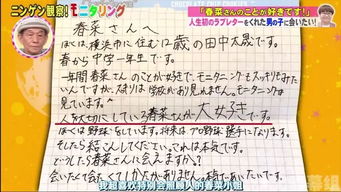 ニンゲン観察!モニタリング
「春菜さんのことが好きです!」
人生初のラブレターをくれた男の子に会いたい!
春菜さんへ
ぼくは横浜市に住む12歳の田中太晟です。
春から中学一年生です。
一年間春菜さんのことが好きで、モニタリングもスッキリもみた
いんですが、スッキリは学校があり見れません。モニタリングは
見ています。
人を大切にしている春菜さんが大好きです。
ぼくは野球をしています。将来はプロ野球選手になります。
そしたら結こんしてください。これは本気です。
どうしたら春菜さんに会えますか?
会いたくて会いたくてしかたがありません。本当に会いたいです。
我超喜欢特别会照顾人的春菜小姐